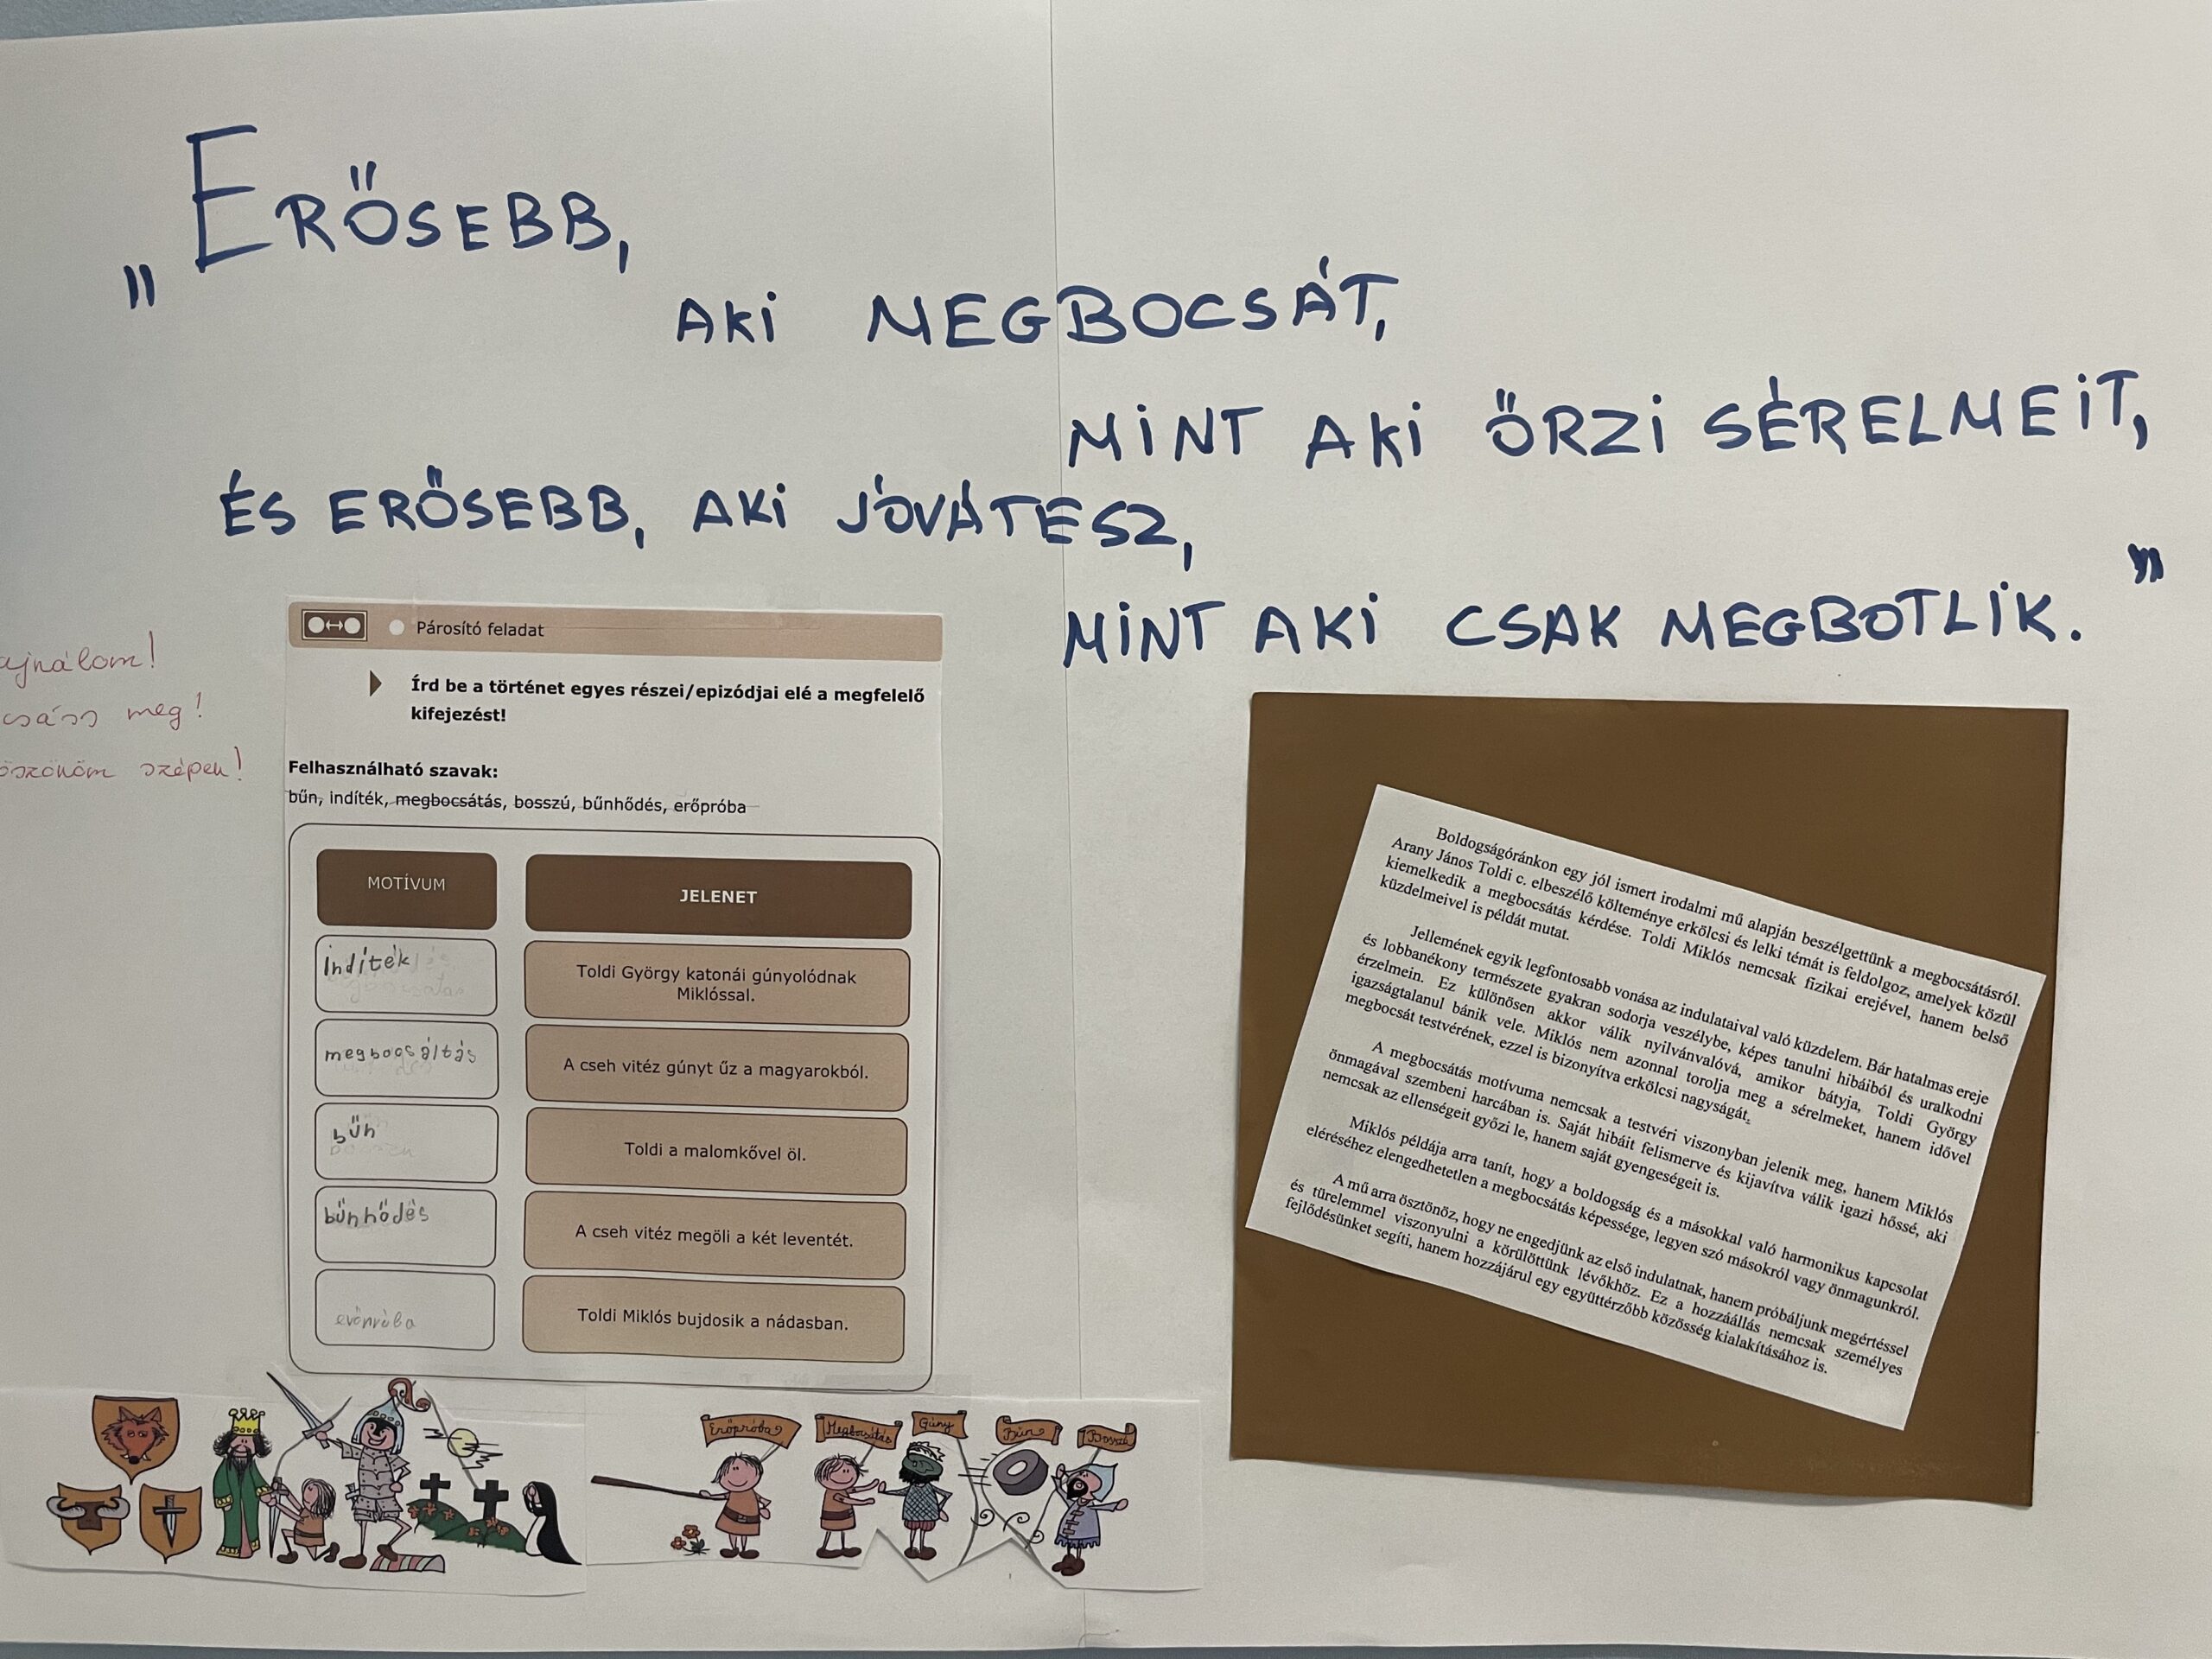 „ERŐSEBB,
AKI MEGBOCSÁT,
MINT AKI ŐRZI SÉRELMEIT,
ÉS ERŐSEBB, AKI JÓVÁTESZ,
MINT AKI CSAK MEGBOTLIK.”
ajnálom!
csáss meg!
öszönöm szépen!
Párosító feladat
Írd be a történet egyes részei/epizódjai elé a megfelelő
kifejezést!
Felhasználható szavak:
bűn, indíték, megbocsátás, bosszú, bűnhődés, erőpróba
MOTÍVUM JELENET
indíték Toldi György katonái gúnyolódnak
Miklóssal.
megbocsáltás A cseh vitéz gúnyt űz a magyarokból.
bűn Toldi a malomkővel öl.
bűnhődés A cseh vitéz megöli a két leventét.
erőpróba Toldi Miklós bujdosik a nádasban.
Erőpróba Megbocsátás Gúny Bűn Bosszú
Boldogságóránkon egy jól ismert irodalmi mű alapján beszélgettünk a megbocsátásról.
Arany János Toldi c. elbeszélő költeménye erkölcsi és lelki témát is feldolgoz, amelyek közül
kiemelkedik a megbocsátás kérdése. Toldi Miklós nemcsak fizikai erejével, hanem belső
küzdelmeivel is példát mutat.
Jellemének egyik legfontosabb vonása az indulataival való küzdelem. Bár hatalmas ereje
és lobbanékony természete gyakran sodorja veszélybe, képes tanulni hibáiból és uralkodni
érzelmein. Ez különösen akkor válik nyilvánvalóvá, amikor bátyja, Toldi György
igazságtalanul bánik vele. Miklós nem azonnal torolja meg a sérelmeket, hanem idővel
megbocsát testvérének, ezzel is bizonyítva erkölcsi nagyságát.
A megbocsátás motívuma nemcsak a testvéri viszonyban jelenik meg, hanem Miklós
önmagával szembeni harcában is. Saját hibáit felismerve és kijavítva válik igazi hőssé, aki
nemcsak az ellenségeit győzi le, hanem saját gyengeségeit is.
Miklós példája arra tanít, hogy a boldogság és a másokkal való harmonikus kapcsolat
eléréséhez elengedhetetlen a megbocsátás képessége, legyen szó másokról vagy önmagunkról.
A mű arra ösztönöz, hogy ne engedjünk az első indulatnak, hanem próbáljunk megértéssel
és türelemmel viszonyulni a körülöttünk lévőkhöz. Ez a hozzáállás nemcsak személyes
fejlődésünket segíti, hanem hozzájárul egy együttérzőbb közösség kialakításához is.